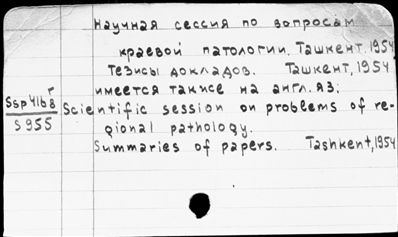 Научная сессия по вопросам
краевой патологии. Ташкент. 1954
Тезисы докладов. Ташкент, 1954
имеется также на англ. яз:
Ssp41b8 Scientific session on problems of re-
S955 gional pathology.
Summaries of papers. Tashkent, 1954